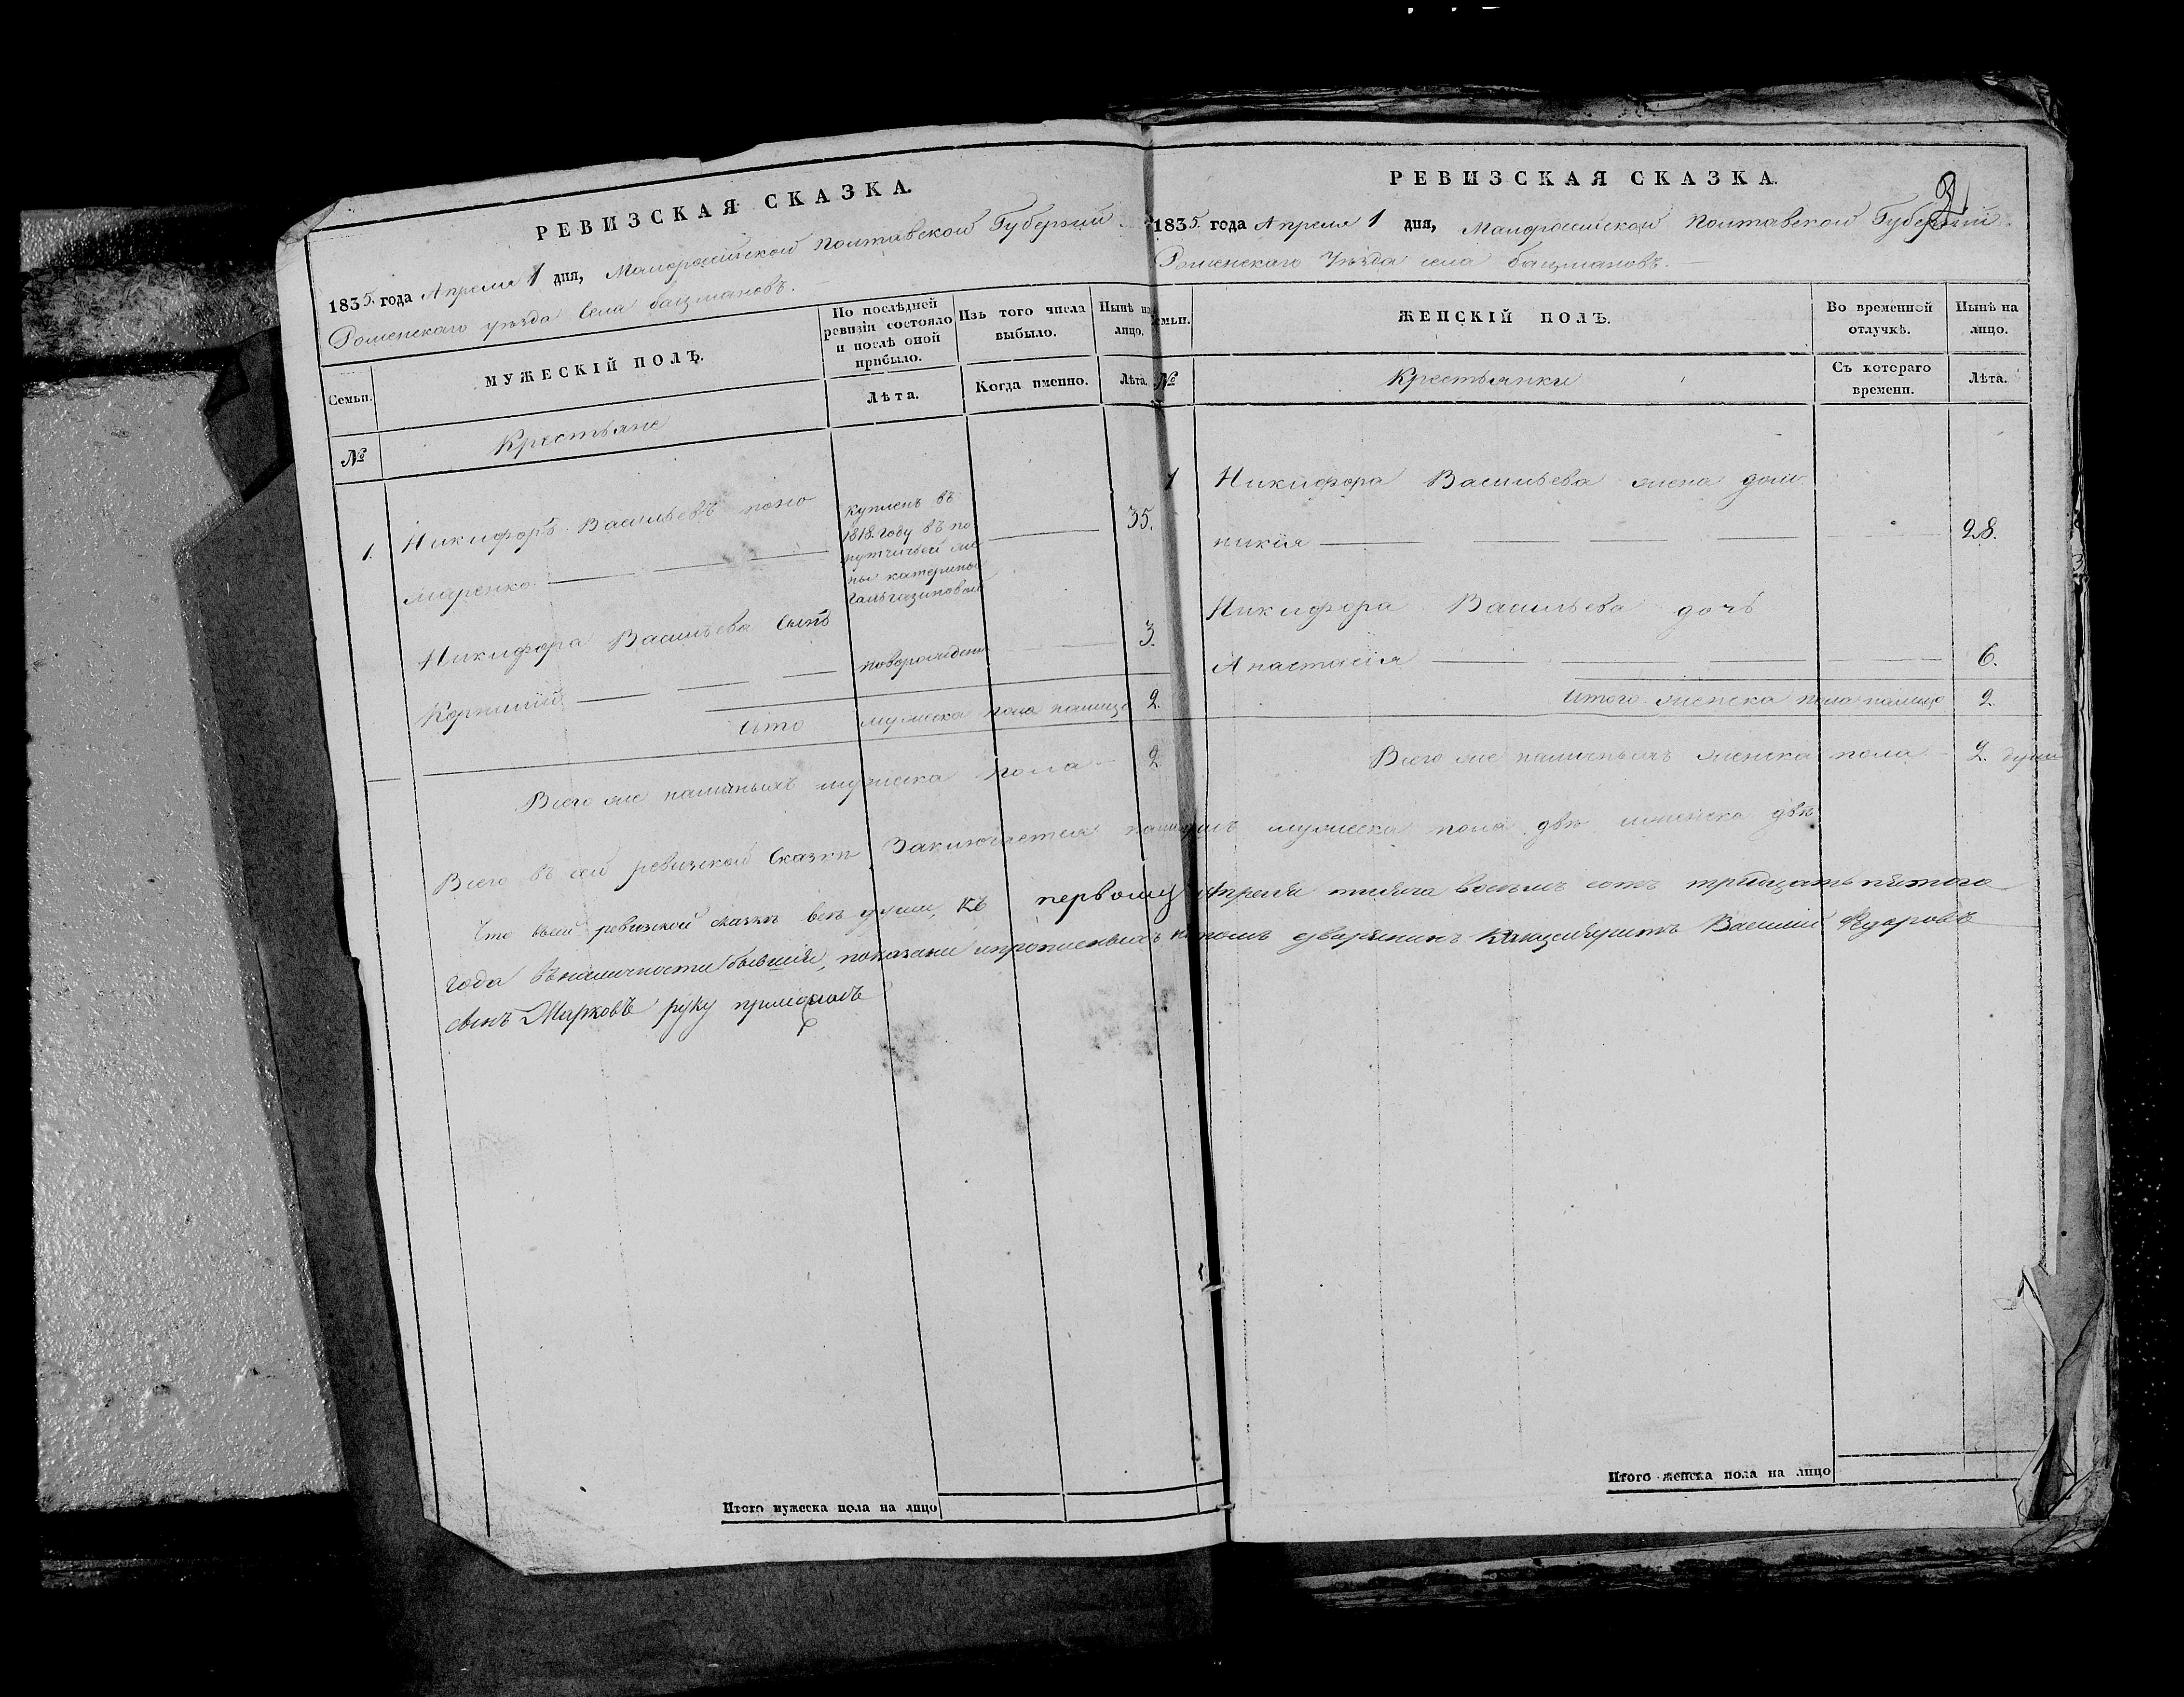 РЕВИЗСКАЯ СКАЗКА.
1835. года Апреля 1 дня, Малороссійской Полтавской Губерніи
Роменского уѣзда Села бацмановъ.
Семьи.
МУЖЕСКІЙ ПОЛЪ.
По послѣдней
ревизіи состояло
и послѣ оной
прибыло.
Изъ того числа
выбыло.
Нынѣ на
лицо.
Лѣта.
Когда именно.
Лѣта.
№
Крестьяне
1.
Никифоръ Васильевъ поно
маренко
куплень въ
1818. году въ по
ручичьей
ны катерины
35.
Никифора Васильева Сынъ
Корнилій
новорожденъ
3.
Ито мужеска пола налицо 2.
Всего же наличныхъ мужеска пола 2
РЕВИЗСКАЯ СКАЗКА.
3
1835. года Апреля 1 дня, Малороссійской Полтавской Губерніи
Роменского Уѣзда села бацмановъ.
Семьи.
ЖЕНСКІЙ ПОЛЪ.
Во временной
отлучкѣ.
Нынѣ на
лицо.
№
Крестьянки
Съ котораго
времени.
Лѣта.
1
Никифора Васильева жена дом
никія 28.
Никифора Васильева дочь
Анастасія 6.
Итого женска пола налицо 2.
Всего же наличныхъ женска пола 2. души
Всего въ сей ревизской Сказки Заключается мужеска пола двѣ женска двѣ
Что всей ревизской сказкѣ всѣ души, къ первому Апреля тысяча восемь сотъ тридцать пятого
года въ наличности бывшія, показани дворянинъ Канцеляристъ Василій Федоровъ
сынъ Марковъ руку приложилъ
Итого мужеска пола на лицо
Итого женска пола на лицо